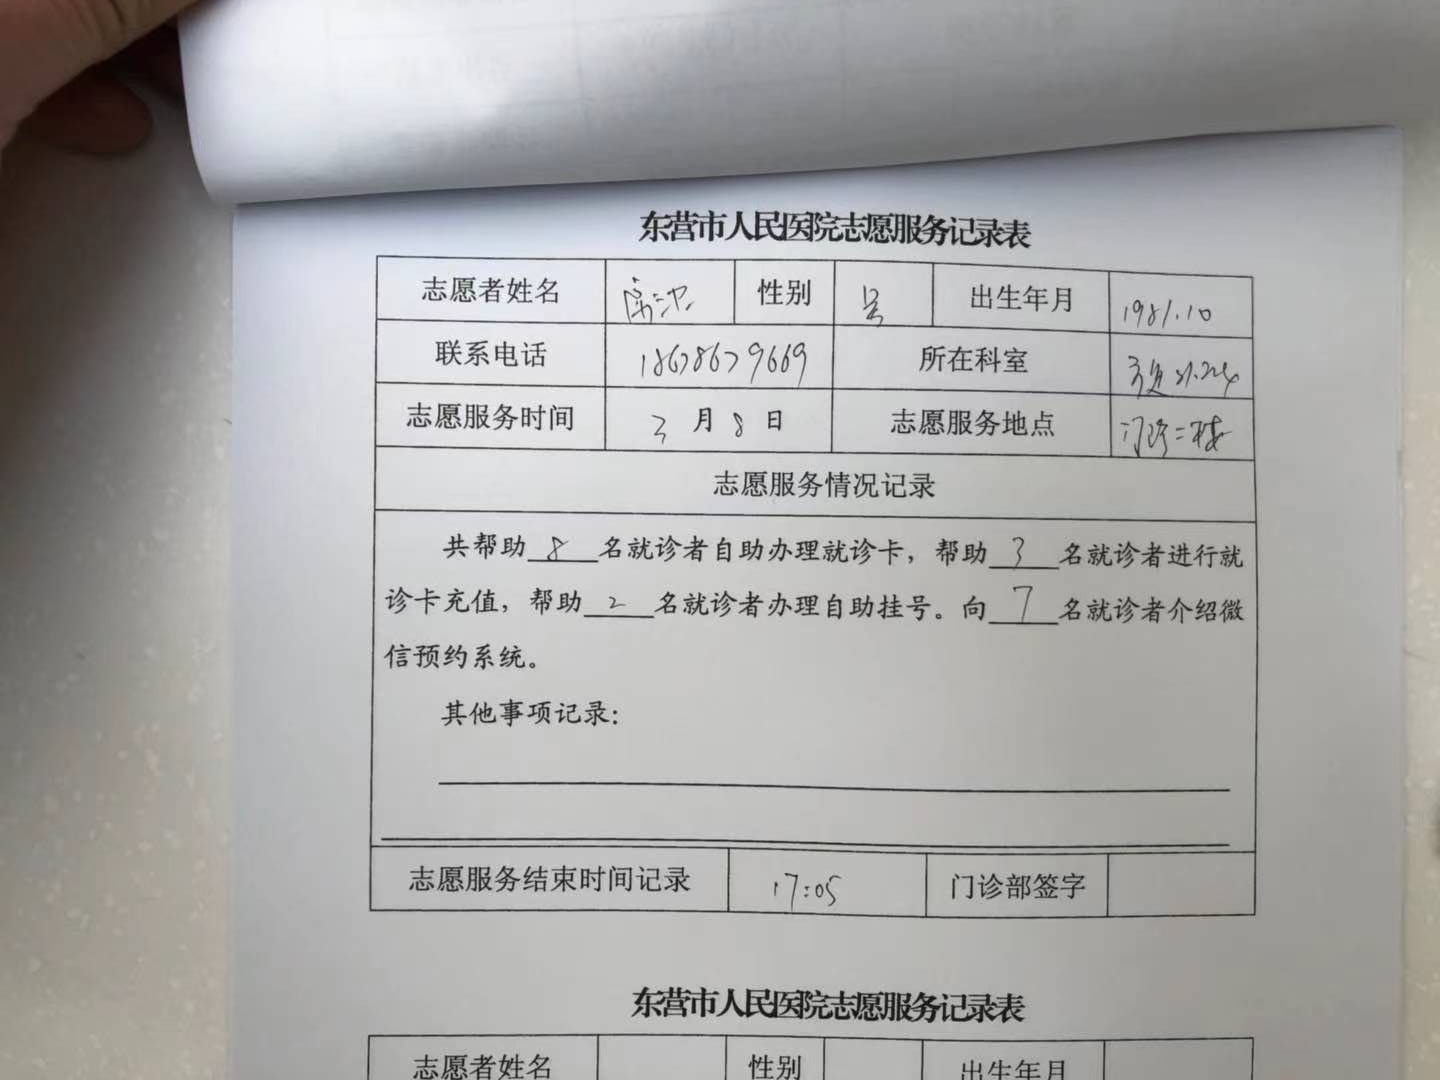 东营市人民医院志愿服务记录表
志愿者姓名 性别 男 出生年月 1981.10
联系电话 18678679669 所在科室
志愿服务时间 3月8日 志愿服务地点 门诊二楼
志愿服务情况记录
共帮助8名就诊者自助办理就诊卡，帮助3名就诊者进行就
诊卡充值，帮助2名就诊者办理自助挂号。向7名就诊者介绍微
信预约系统。
其他事项记录：
志愿服务结束时间记录 17:05 门诊部签字
东营市人民医院志愿服务记录表
志愿者姓名 性别 出生年月